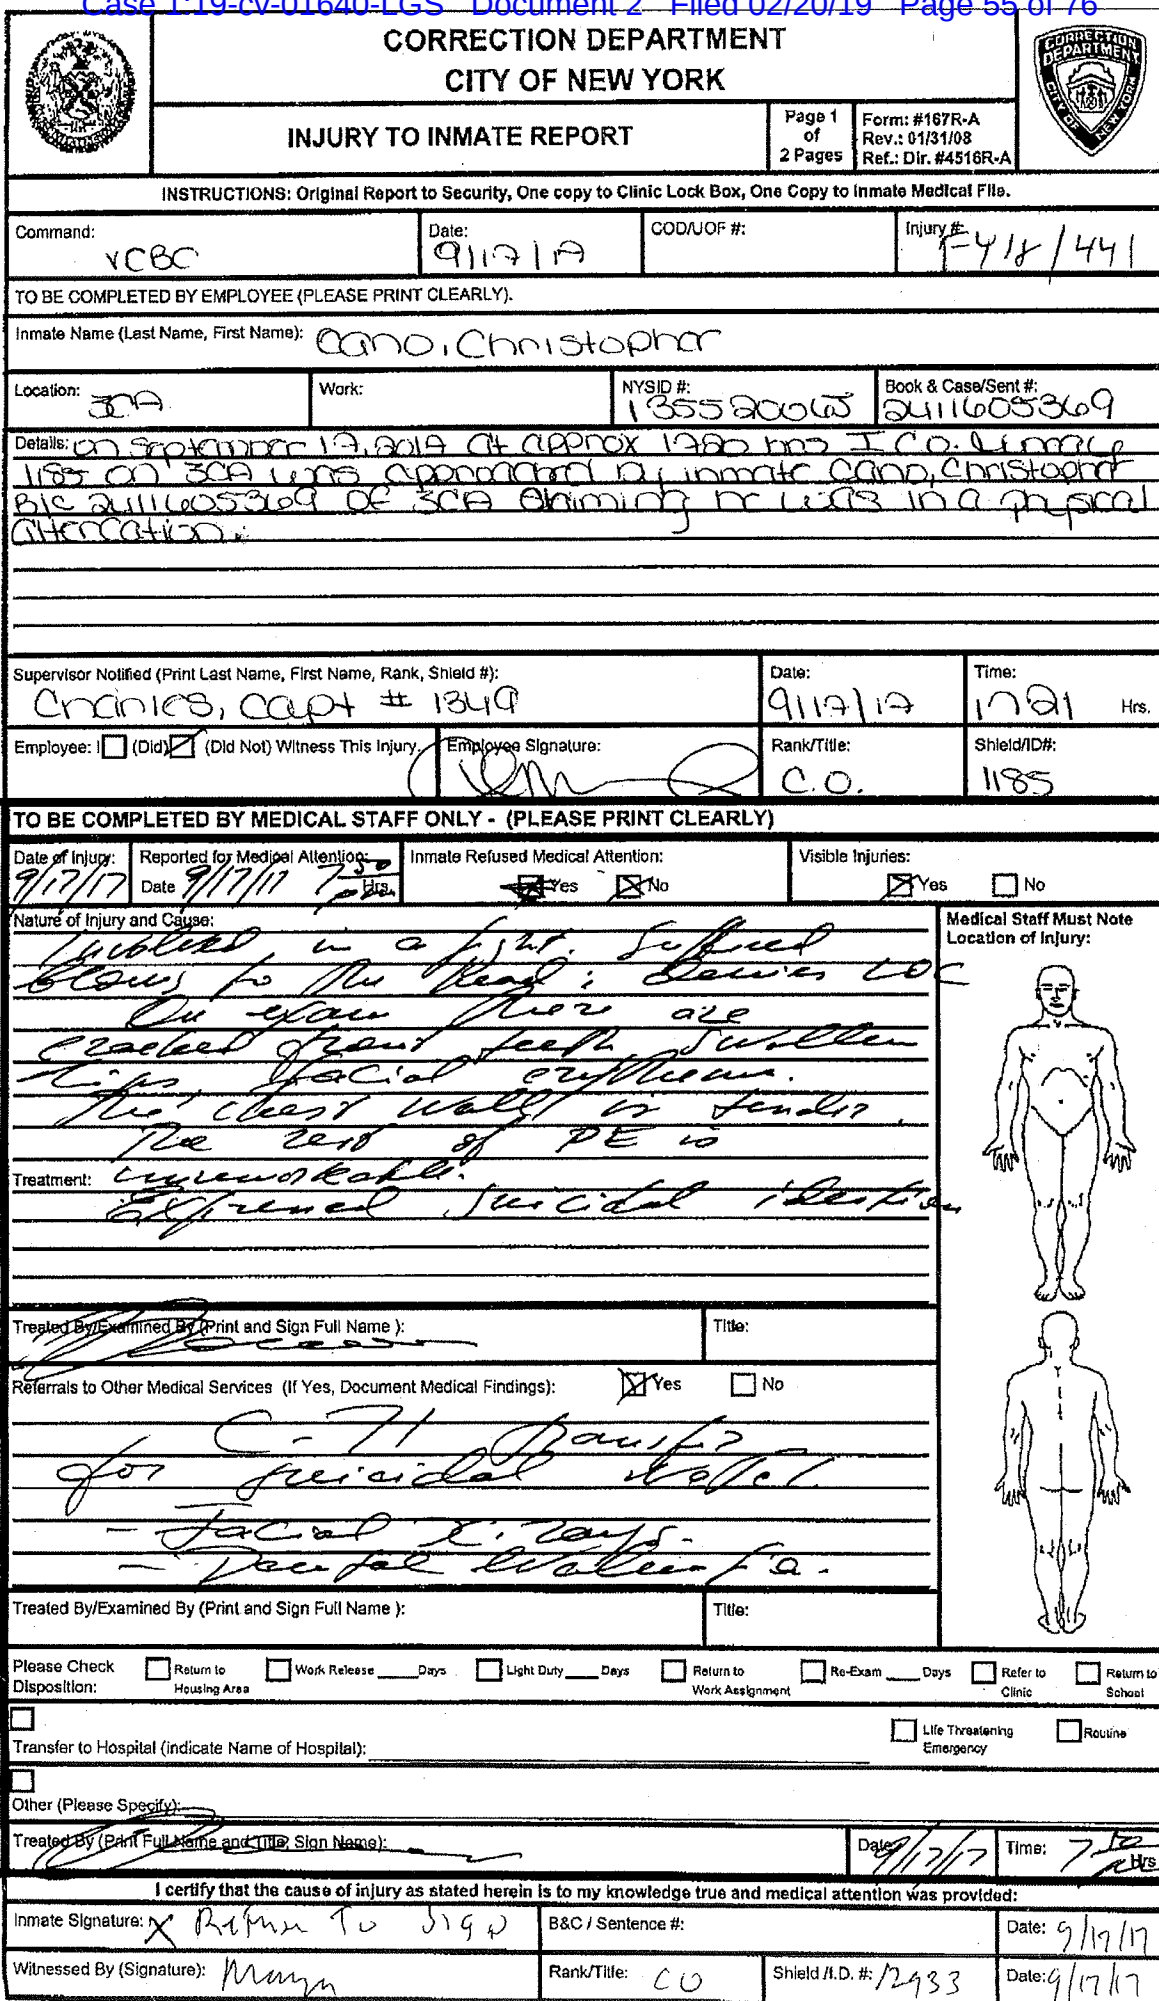 Case 1:19-cv-01640-LGS Document 2 Filed 02/20/19 Page 55 of 76
CORRECTION DEPARTMENT
CITY OF NEW YORK
INJURY TO INMATE REPORT
Page 1
of
2 Pages
Form: #167R-A
Rev.: 01/31/08
Ref.: Dir. #4516R-A
CORRECTION
DEPARTMENT
CITY OF NEW YORK
INSTRUCTIONS: Original Report to Security, One copy to Clinic Lock Box, One Copy to Inmate Medical File.
Command: VCBC
Date: 9/17/17
COD/UOF #:
Injury #:
TO BE COMPLETED BY EMPLOYEE (PLEASE PRINT CLEARLY).
Inmate Name (Last Name, First Name): Cano, Christopher
Location: 3CA
Work:
NYSID #:
Book & Case/Sent #: 2411605369
Details: On September 17, 2017 at approx 1720 hrs I C.O.
1185 on 3CA was approached by inmate Cano, Christopher
B/C 2411605369 of 3CA claiming he was in a physical
altercation.
Supervisor Notified (Print Last Name, First Name, Rank, Shield #):
Charles, Capt # 1349
Date: 9/17/17
Time: 1721 Hrs.
Employee: I (Did) (Did Not) Witness This Injury.
Employee Signature:
Rank/Title: C.O.
Shield/ID#: 1185
TO BE COMPLETED BY MEDICAL STAFF ONLY - (PLEASE PRINT CLEARLY)
Date of Injury: 9/17/17
Reported for Medical Attention:
Date 9/17/17 7 50 pm Hrs.
Inmate Refused Medical Attention:
Yes No
Visible Injuries:
Yes No
Nature of Injury and Cause:
Involved in a fight. Suffered
blows to the head; denies LOC
On exam there are
cracked front teeth swollen
lips, facial erythema.
The chest wall is tender.
The rest of PE is
Treatment: unremarkable.
Expressed suicidal ideation
Medical Staff Must Note
Location of Injury:
Treated By/Examined By (Print and Sign Full Name ):
Title:
Referrals to Other Medical Services (If Yes, Document Medical Findings): Yes No
C-71 transfer
for suicidal watch.
- Facial X-rays.
- Dental
Treated By/Examined By (Print and Sign Full Name ):
Title:
Please Check
Disposition:
Return to
Housing Area
Work Release ____ Days
Light Duty ____ Days
Return to
Work Assignment
Re-Exam ____ Days
Refer to
Clinic
Return to
School
Transfer to Hospital (indicate Name of Hospital):
Life Threatening
Emergency
Routine
Other (Please Specify):
Treated By (Print Full Name and Title, Sign Name):
Date: 9/17/17
Time: 7 50 pm Hrs
I certify that the cause of injury as stated herein is to my knowledge true and medical attention was provided:
Inmate Signature: X Refuse To Sign
B&C / Sentence #:
Date: 9/17/17
Witnessed By (Signature):
Rank/Title: CO
Shield /I.D. #: 12933
Date: 9/17/17